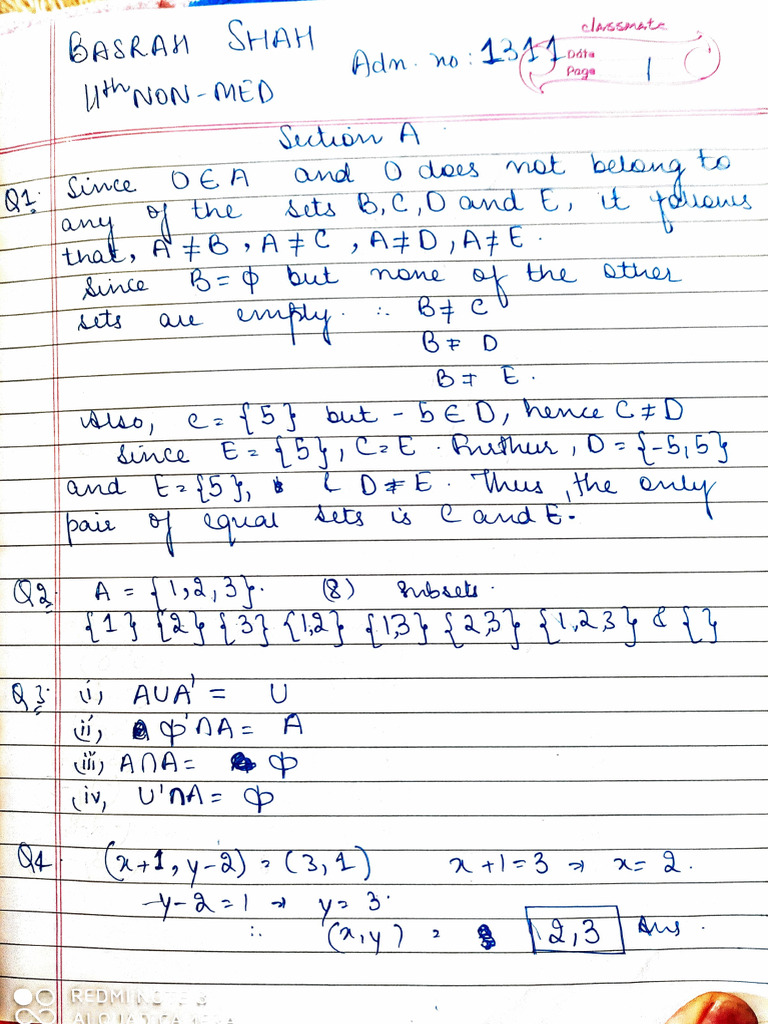 BASRAH SHAH
11th NON-MED
Adn. no: 1311
classmate
Date
Page 1
Section A
Q1. Since O ∈ A and O does not belong to
any of the sets B, C, D and E, it follows
that, A ≠ B, A ≠ C, A ≠ D, A ≠ E.
Since B = φ but none of the other
sets are empty. ∴ B ≠ C
B ≠ D
B ≠ E.
Also, C = {5} but -5 ∈ D, hence C ≠ D
Since E = {5}, C = E. Further, D = {-5, 5}
and E = {5}, & D ≠ E. Thus, the only
pair of equal sets is C and E.
Q2. A = {1, 2, 3}. (8) subsets.
{1} {2} {3} {1,2} {1,3} {2,3} {1,2,3} & {}
Q3. (i), A∪A' = U
(ii), φ'∩A = A
(iii), A∩A = φ
(iv, U'∩A = φ
Q4. (x+1, y-2) = (3, 1) x+1=3 ⇒ x= 2.
y-2=1 ⇒ y= 3.
∴ (x, y) = 2,3 Ans.
REDMI NOTE 8
AI QUAD CAMERA